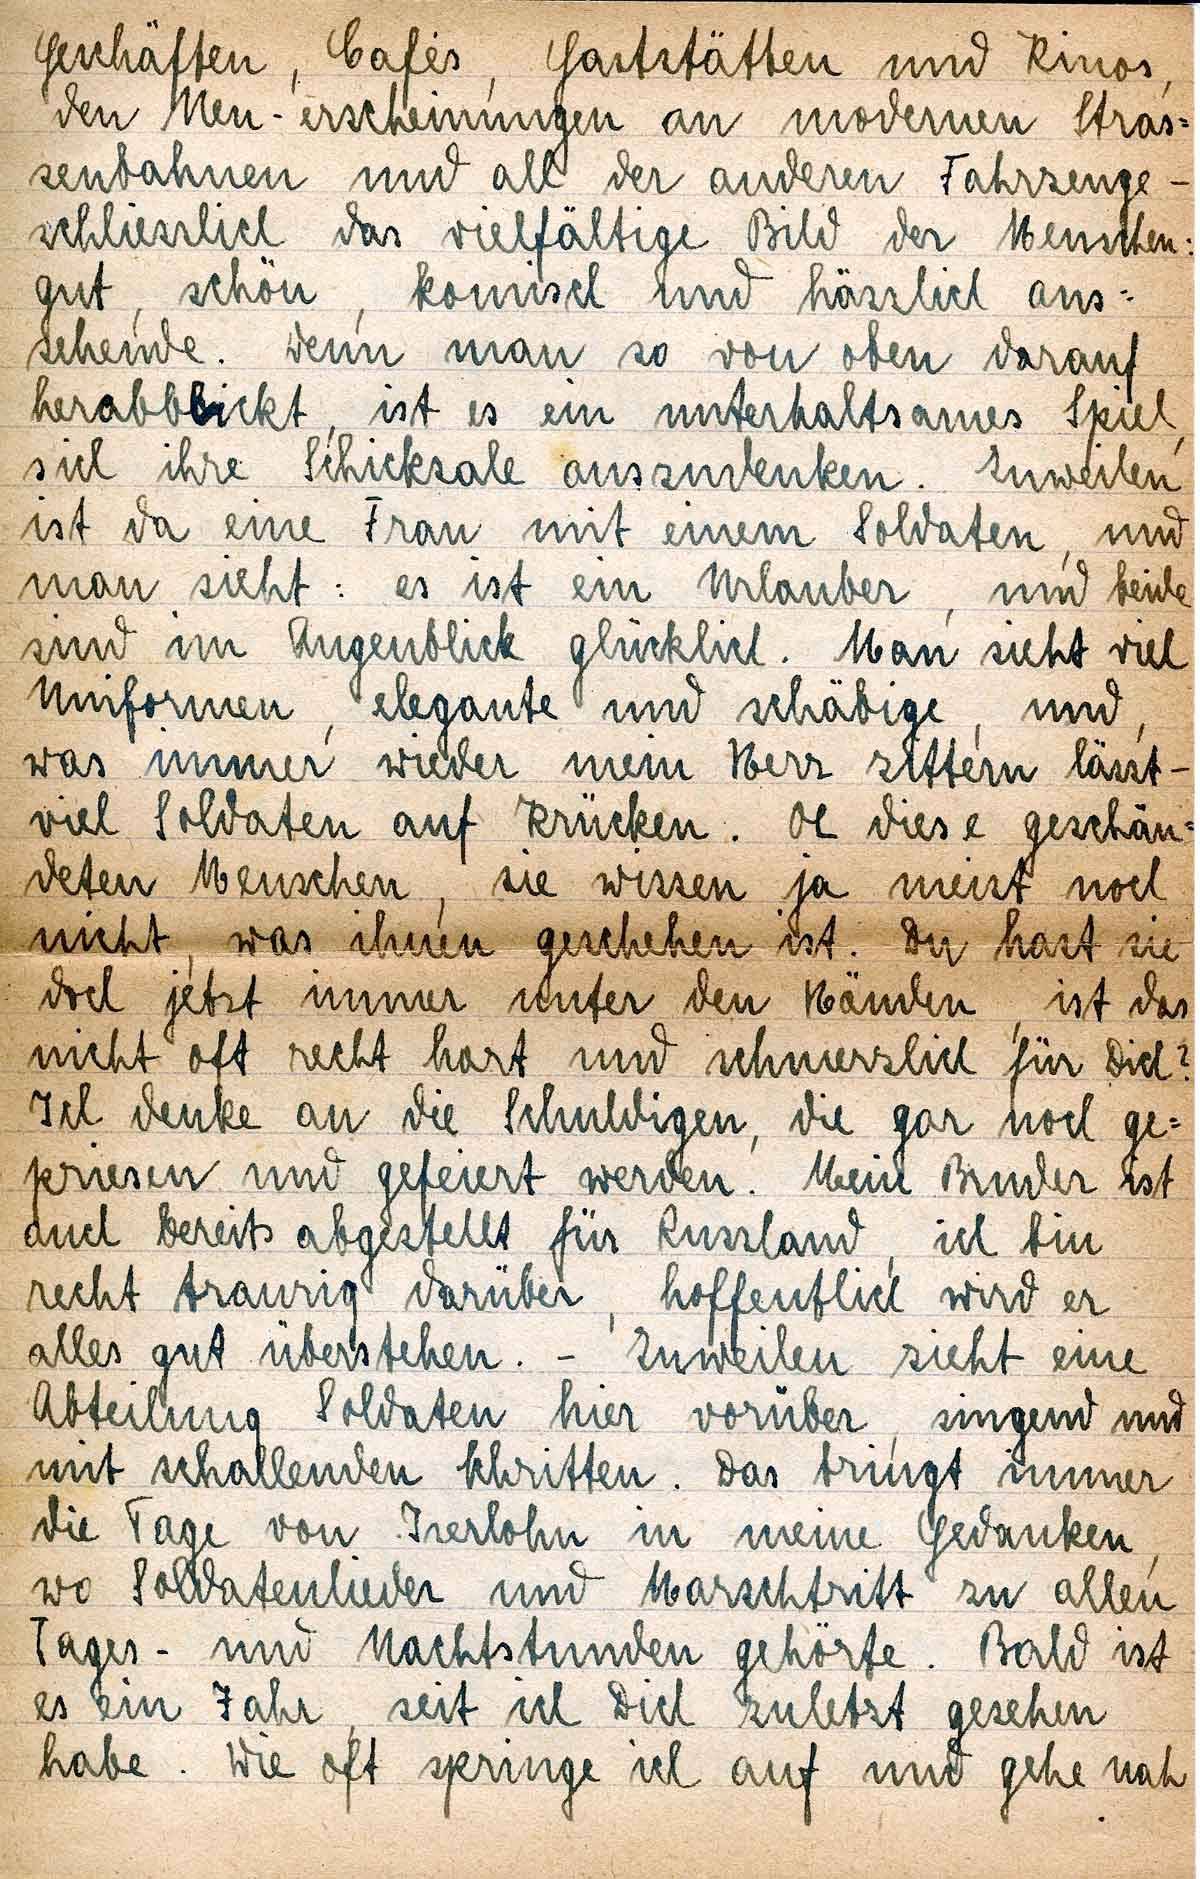 Geschäften, Cafés, Gaststätten und Kinos,
den Neu-erscheinungen an modernen Stras=
senbahnen und all der anderen Fahrzeuge -
schliesslich das vielfältige Bild der Menschen:
gut, schön, komisch und hässlich aus=
sehende. Wenn man so von oben darauf
herabblickt, ist es ein unterhaltsames Spiel,
sich ihre Schicksale auszudenken. Zuweilen
ist da eine Frau mit einem Soldaten, und
man sieht: es ist ein Urlauber, und beide
sind im Augenblick glücklich. Man sieht viel
Uniformen, elegante und schäbige, und,
was immer wieder mein Herz zittern lässt -
viel Soldaten auf Krücken. Oh diese geschän=
deten Menschen, sie wissen ja meist noch
nicht, was ihnen geschehen ist. Du hast sie
doch jetzt immer unter den Händen, ist das
nicht oft recht hart und schmerzlich für Dich?
Ich denke an die Schuldigen, die gar noch ge=
priesen und gefeiert werden. Mein Bruder ist
auch bereits abgestellt für Russland, ich bin
recht traurig darüber, hoffentlich wird er
alles gut überstehen. - Zuweilen zieht eine
Abteilung Soldaten hier vorüber, singend und
mit schallenden Schritten. Das bringt immer
die Tage von Iserlohn in meine Gedanken,
wo Soldatenlieder und Marschtritt zu allen
Tages- und Nachtstunden gehörte. Bald ist
es ein Jahr, seit ich Dich zuletzt gesehen
habe. Wie oft springe ich auf und gehe nah